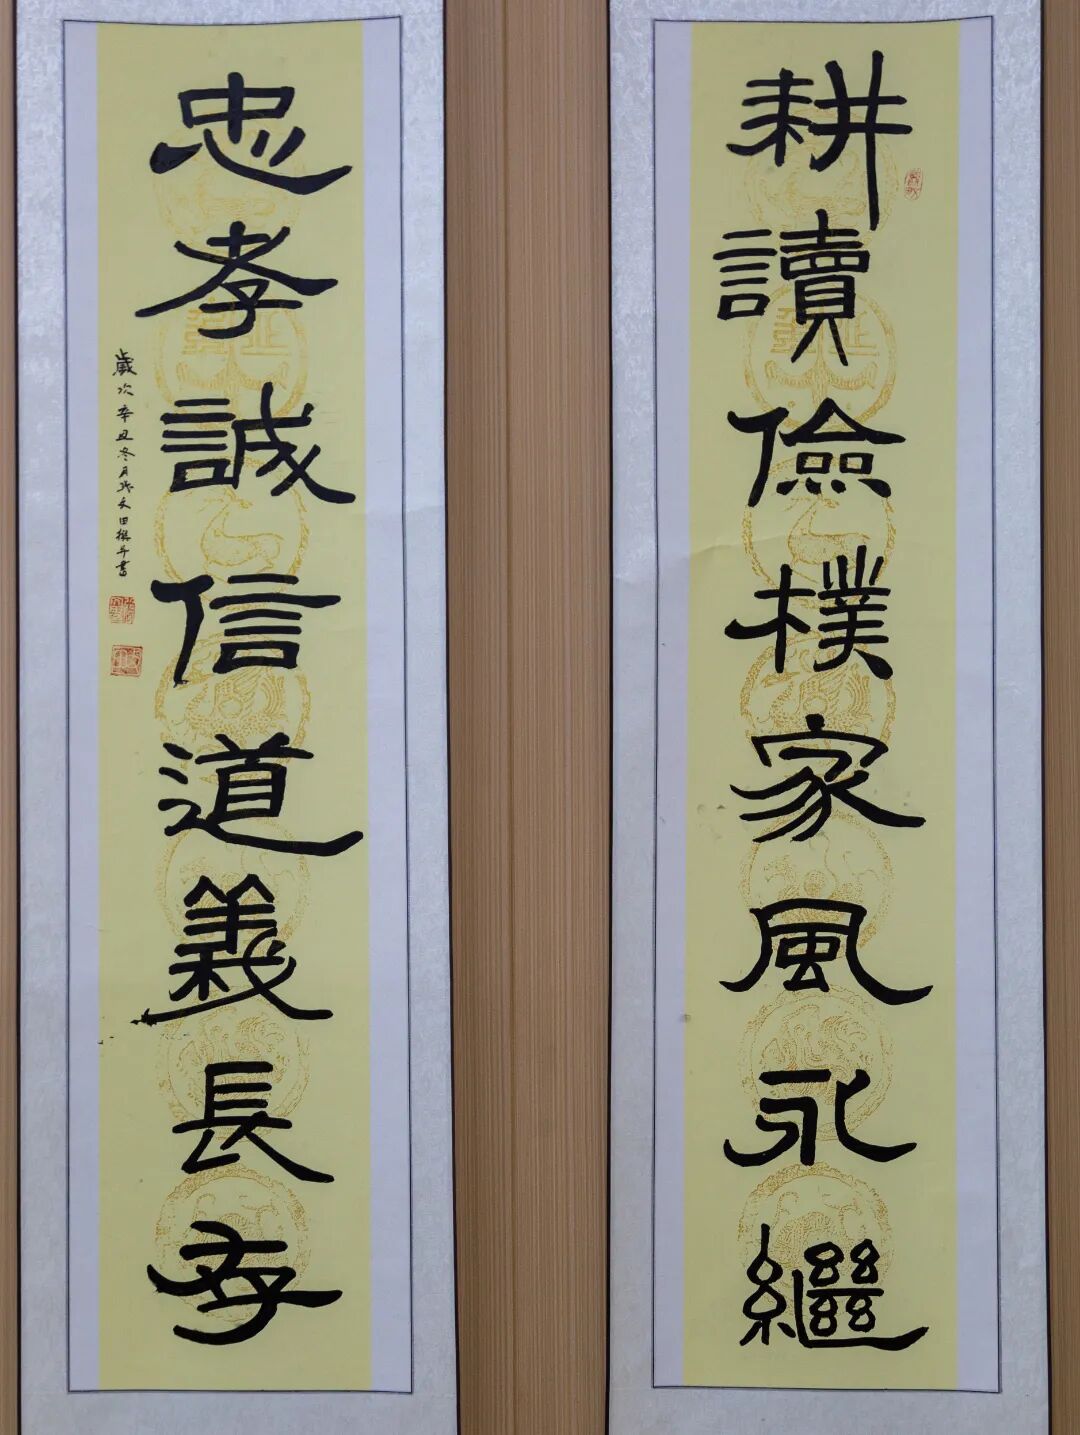 耕讀儉樸家風永繼
忠孝誠信道義長存
歲次辛丑冬月 文田撰并書